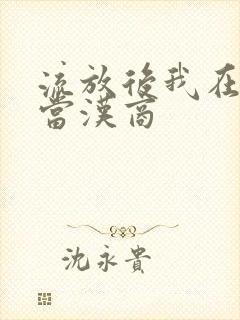 流放後我在
當漢商
沈永貴